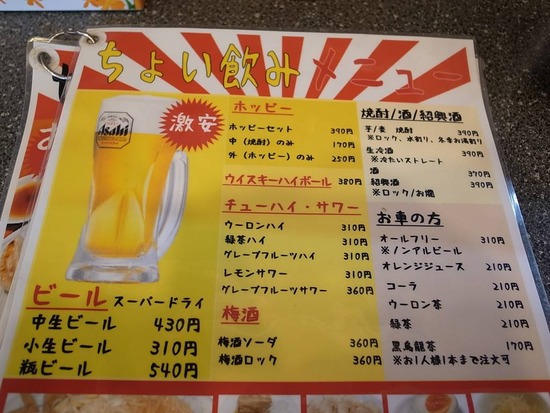 ちょい飲みメニュー
Asahi
激安
ビール スーパードライ
中生ビール 430円
小生ビール 310円
瓶ビール 540円
ホッピー
ホッピーセット 390円
中（焼酎）のみ 170円
外（ホッピー）のみ 250円
ウイスキーハイボール 380円
チューハイ・サワー
ウーロンハイ 310円
緑茶ハイ 310円
グレープフルーツハイ 310円
レモンサワー 310円
グレープフルーツサワー 360円
梅酒
梅酒ソーダ 360円
梅酒ロック 360円
焼酎/酒/紹興酒
芋/麦 焼酎 390円
※ロック、水割り、お湯割り
生冷酒 390円
※冷たいストレート
酒 370円
紹興酒 390円
※ロック/お燗
お車の方
オールフリー 310円
※ノンアルビール
オレンジジュース 210円
コーラ 210円
ウーロン茶 210円
緑茶 210円
黒烏龍茶 170円
※お1人様1本まで注文可